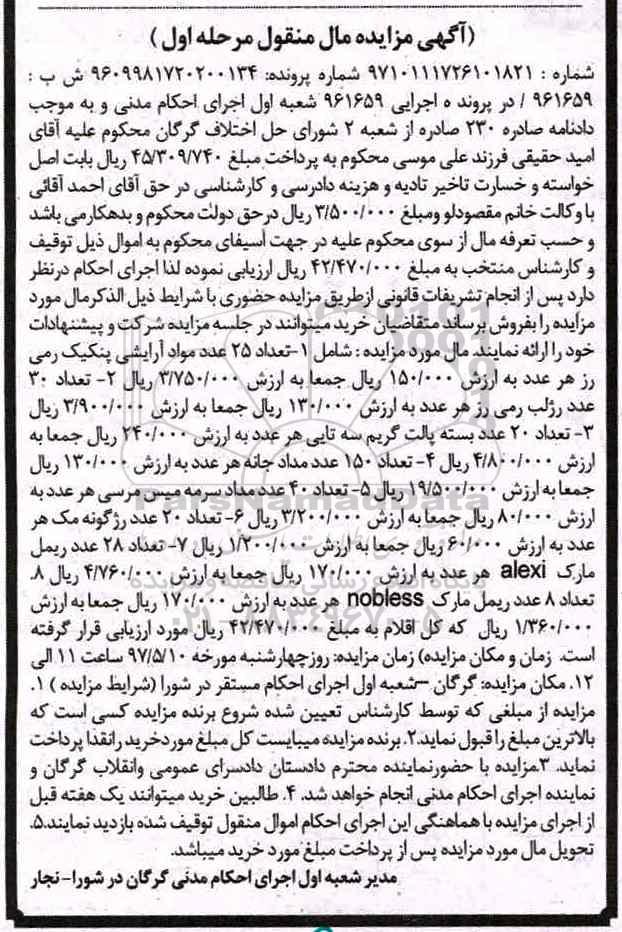 (آگهی مزایده مال منقول مرحله اول)
شماره : ۹۷۱۰۱۱۱۷۲۶۱۰۱۸۲۱ شماره پرونده: ۹۶۰۹۹۸۱۷۲۰۲۰۰۱۳۴ ش ب :
۹۶۱۶۵۹ / در پرونده اجرایی ۹۶۱۶۵۹ شعبه اول اجرای احکام مدنی و به موجب
دادنامه صادره ۲۳۰ صادره از شعبه ۲ شورای حل اختلاف گرگان محکوم علیه آقای
امید حقیقی فرزند علی موسی محکوم به پرداخت مبلغ ۴۵/۳۰۹/۷۴۰ ریال بابت اصل
خواسته و خسارت تاخیر تادیه و هزینه دادرسی و کارشناسی در حق آقای احمد آقائی
با وکالت خانم مقصودلو ومبلغ ۳/۵۰۰/۰۰۰ ریال درحق دولت محکوم و بدهکارمی باشد
و حسب تعرفه مال از سوی محکوم علیه در جهت اسیفای محکوم به اموال ذیل توقیف
و کارشناس منتخب به مبلغ ۴۲/۴۷۰/۰۰۰ ریال ارزیابی نموده لذا اجرای احکام درنظر
دارد پس از انجام تشریفات قانونی ازطریق مزایده حضوری با شرایط ذیل الذکرمال مورد
مزایده را بفروش برساند متقاضیان خرید میتوانند در جلسه مزایده شرکت و پیشنهادات
خود را ارائه نمایند. مال مورد مزایده : شامل ۱-تعداد ۲۵ عدد مواد آرایشی پنکیک رمی
رز هر عدد به ارزش ۱۵۰/۰۰۰ ریال جمعا به ارزش ۳/۷۵۰/۰۰۰ ریال ۲- تعداد ۳۰
عدد رژلب رمی رز هر عدد به ارزش ۱۳۰/۰۰۰ ریال جمعا به ارزش ۳/۹۰۰/۰۰۰ ریال
۳- تعداد ۲۰ عدد بسته پالت گریم سه تایی هر عدد به ارزش ۲۴۰/۰۰۰ ریال جمعا به
ارزش ۴/۸۰۰/۰۰۰ ریال ۴- تعداد ۱۵۰ عدد مداد جانه هر عدد به ارزش ۱۳۰/۰۰۰ ریال
جمعا به ارزش ۱۹/۵۰۰/۰۰۰ ریال ۵- تعداد ۴۰ عدد مداد سرمه میس مرسی هر عدد به
ارزش ۸۰/۰۰۰ ریال جمعا به ارزش ۳/۲۰۰/۰۰۰ ریال ۶- تعداد ۲۰ عدد رژگونه مک هر
عدد به ارزش ۶۰/۰۰۰ ریال جمعا به ارزش ۱/۲۰۰/۰۰۰ ریال ۷- تعداد ۲۸ عدد ریمل
مارک alexi هر عدد به ارزش ۱۷۰/۰۰۰ ریال جمعا به ارزش ۴/۷۶۰/۰۰۰ ریال ۸.
تعداد ۸ عدد ریمل مارک nobless هر عدد به ارزش ۱۷۰/۰۰۰ ریال جمعا به ارزش
۱/۳۶۰/۰۰۰ ریال که کل اقلام به مبلغ ۴۲/۴۷۰/۰۰۰ ریال مورد ارزیابی قرار گرفته
است. زمان و مکان مزایده) زمان مزایده: روزچهارشنبه مورخه ۹۷/۵/۱۰ ساعت ۱۱ الی
۱۲. مکان مزایده: گرگان –شعبه اول اجرای احکام مستقر در شورا (شرایط مزایده ) ۱.
مزایده از مبلغی که توسط کارشناس تعیین شده شروع برنده مزایده کسی است که
بالاترین مبلغ را قبول نماید.۲. برنده مزایده میبایست کل مبلغ موردخرید رانقدا پرداخت
نماید. ۳.مزایده با حضورنماینده محترم دادستان دادسرای عمومی وانقلاب گرگان و
نماینده اجرای احکام مدنی انجام خواهد شد. ۴. طالبین خرید میتوانند یک هفته قبل
از اجرای مزایده با هماهنگی این اجرای احکام اموال منقول توقیف شده بازدید نمایند.۵.
تحویل مال مورد مزایده پس از پرداخت مبلغ مورد خرید میباشد.
مدیر شعبه اول اجرای احکام مدنی گرگان در شورا- نجار
ParsNamadData